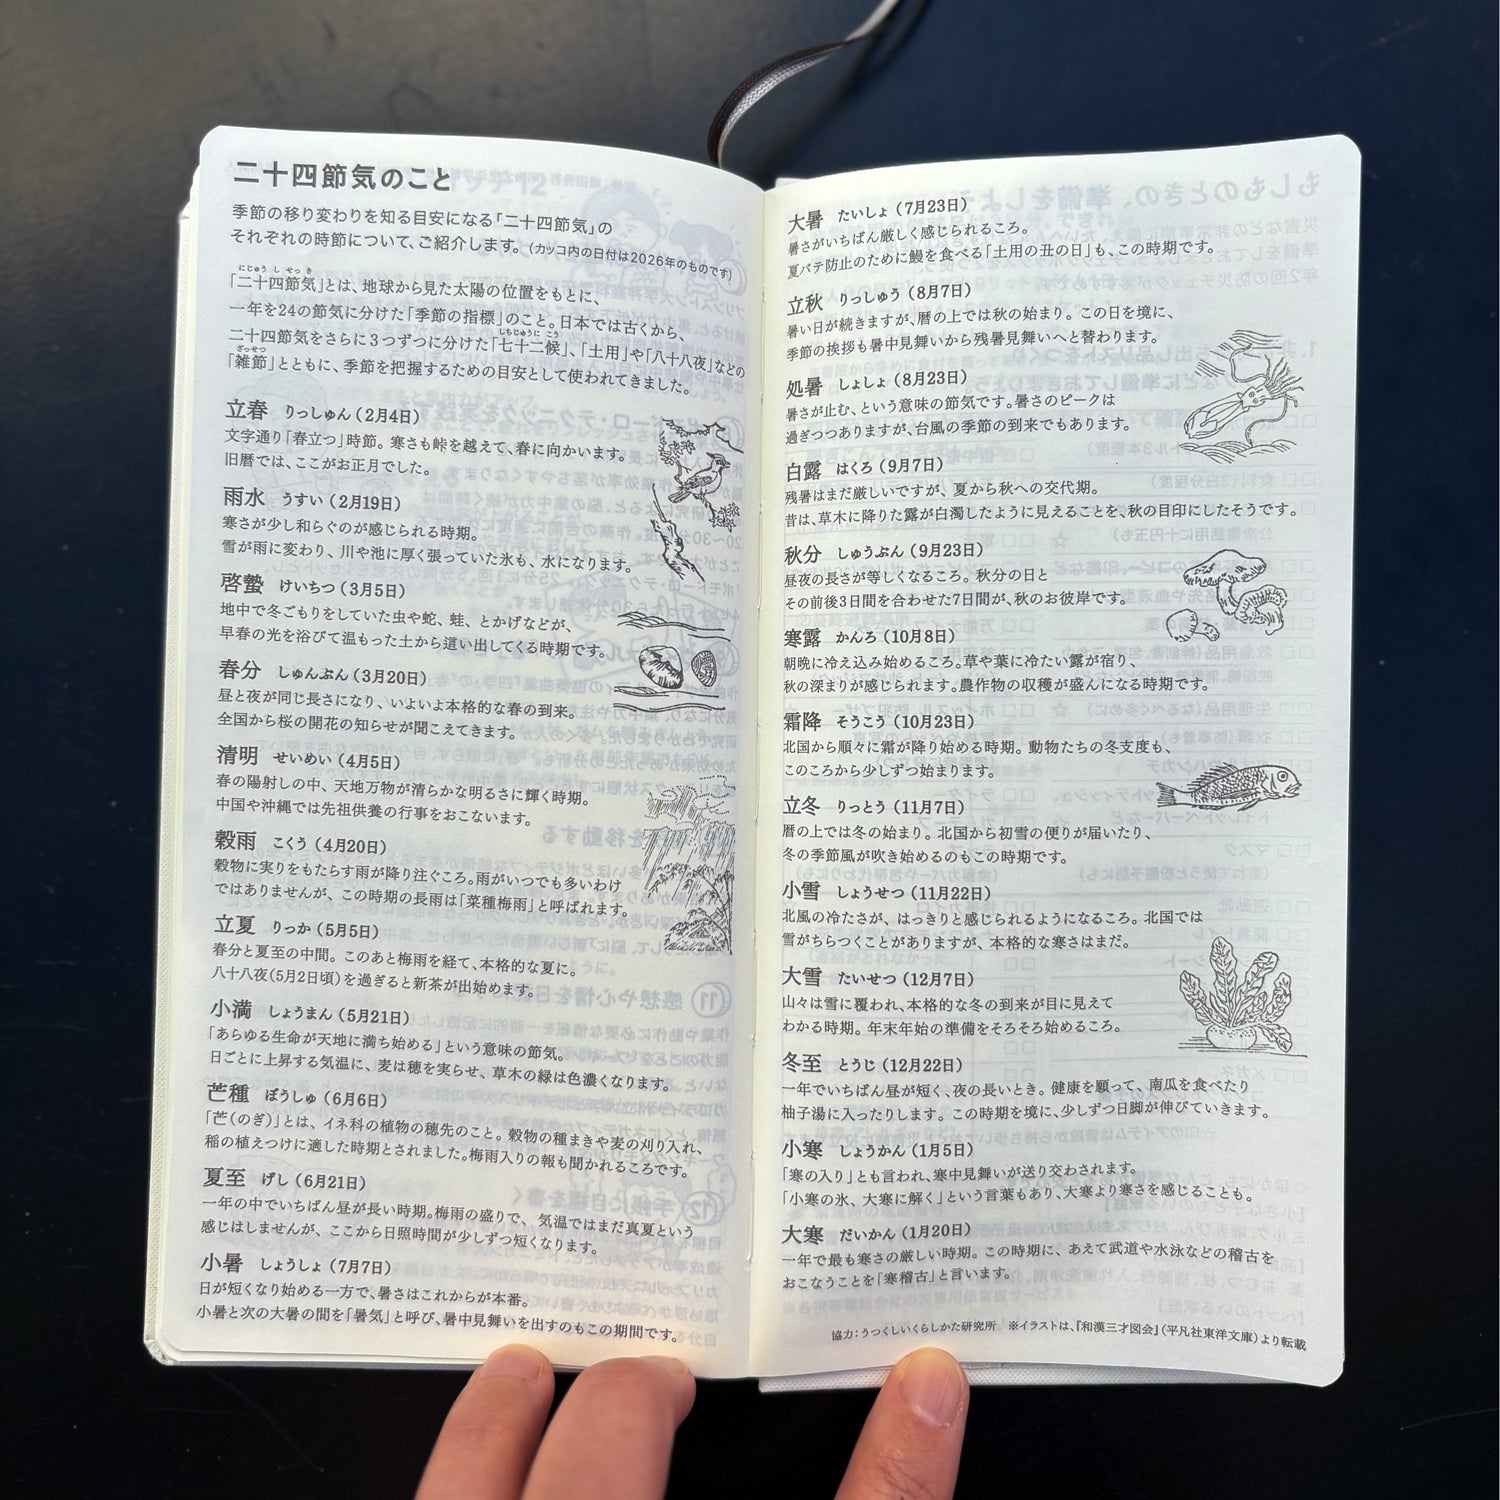 二十四節気のこと
季節の移り変わりを知る目安になる「二十四節気」の
それぞれの時節について、ご紹介します。(カッコ内の日付は2026年のものです)
にじゅうしせっき
「二十四節気」とは、地球から見た太陽の位置をもとに、
一年を24の節気に分けた「季節の指標」のこと。日本では古くから、
しちじゅうにこう
二十四節気をさらに3つずつに分けた「七十二候」、「土用」や「八十八夜」などの
ざっせつ
「雑節」とともに、季節を把握するための目安として使われてきました。
立春 りっしゅん(2月4日)
文字通り「春立つ」時節。寒さも峠を越えて、春に向かいます。
旧暦では、ここがお正月でした。
雨水 うすい(2月19日)
寒さが少し和らぐのが感じられる時期。
雪が雨に変わり、川や池に厚く張っていた氷も、水になります。
啓蟄 けいちつ(3月5日)
地中で冬ごもりをしていた虫や蛇、蛙、とかげなどが、
早春の光を浴びて温もった土から這い出してくる時期です。
春分 しゅんぶん(3月20日)
昼と夜が同じ長さになり、いよいよ本格的な春の到来。
全国から桜の開花の知らせが聞こえてきます。
清明 せいめい(4月5日)
春の陽射しの中、天地万物が清らかな明るさに輝く時期。
中国や沖縄では先祖供養の行事をおこないます。
穀雨 こくう(4月20日)
穀物に実りをもたらす雨が降り注ぐころ。雨がいつでも多いわけ
ではありませんが、この時期の長雨は「菜種梅雨」と呼ばれます。
立夏 りっか(5月5日)
春分と夏至の中間。このあと梅雨を経て、本格的な夏に。
八十八夜(5月2日頃)を過ぎると新茶が出始めます。
小満 しょうまん(5月21日)
「あらゆる生命が天地に満ち始める」という意味の節気。
日ごとに上昇する気温に、麦は穂を実らせ、草木の緑は色濃くなります。
芒種 ぼうしゅ(6月6日)
「芒(のぎ)」とは、イネ科の植物の穂先のこと。穀物の種まきや麦の刈り入れ、
稲の植えつけに適した時期とされました。梅雨入りの報も聞かれるころです。
夏至 げし(6月21日)
一年の中でいちばん昼が長い時期。梅雨の盛りで、気温ではまだ真夏という
感じはしませんが、ここから日照時間が少しずつ短くなります。
小暑 しょうしょ(7月7日)
日が短くなり始める一方で、暑さはこれからが本番。
小暑と次の大暑の間を「暑気」と呼び、暑中見舞いを出すのもこの期間です。
大暑 たいしょ(7月23日)
暑さがいちばん厳しく感じられるころ。
夏バテ防止のために鰻を食べる「土用の丑の日」も、この時期です。
立秋 りっしゅう(8月7日)
暑い日が続きますが、暦の上では秋の始まり。この日を境に、
季節の挨拶も暑中見舞いから残暑見舞いへと替わります。
処暑 しょしょ(8月23日)
暑さが止む、という意味の節気です。暑さのピークは
過ぎつつありますが、台風の季節の到来でもあります。
白露 はくろ(9月7日)
残暑はまだ厳しいですが、夏から秋への交代期。
昔は、草木に降りた露が白濁したように見えることを、秋の目印にしたそうです。
秋分 しゅうぶん(9月23日)
昼夜の長さが等しくなるころ。秋分の日と
その前後3日間を合わせた7日間が、秋のお彼岸です。
寒露 かんろ(10月8日)
朝晩に冷え込み始めるころ。草や葉に冷たい露が宿り、
秋の深まりが感じられます。農作物の収穫が盛んになる時期です。
霜降 そうこう(10月23日)
北国から順々に霜が降り始める時期。動物たちの冬支度も、
このころから少しずつ始まります。
立冬 りっとう(11月7日)
暦の上では冬の始まり。北国から初雪の便りが届いたり、
冬の季節風が吹き始めるのもこの時期です。
小雪 しょうせつ(11月22日)
北風の冷たさが、はっきりと感じられるようになるころ。北国では
雪がちらつくことがありますが、本格的な寒さはまだ。
大雪 たいせつ(12月7日)
山々は雪に覆われ、本格的な冬の到来が目に見えて
わかる時期。年末年始の準備をそろそろ始めるころ。
冬至 とうじ(12月22日)
一年でいちばん昼が短く、夜の長いとき。健康を願って、南瓜を食べたり
柚子湯に入ったりします。この時期を境に、少しずつ日脚が伸びていきます。
小寒 しょうかん(1月5日)
「寒の入り」とも言われ、寒中見舞いが送り交わされます。
「小寒の氷、大寒に解く」という言葉もあり、大寒より寒さを感じることも。
大寒 だいかん(1月20日)
一年で最も寒さの厳しい時期。この時期に、あえて武道や水泳などの稽古を
おこなうことを「寒稽古」と言います。
協力：うつくしいくらしかた研究所 ※イラストは、『和漢三才図会』(平凡社東洋文庫)より転載